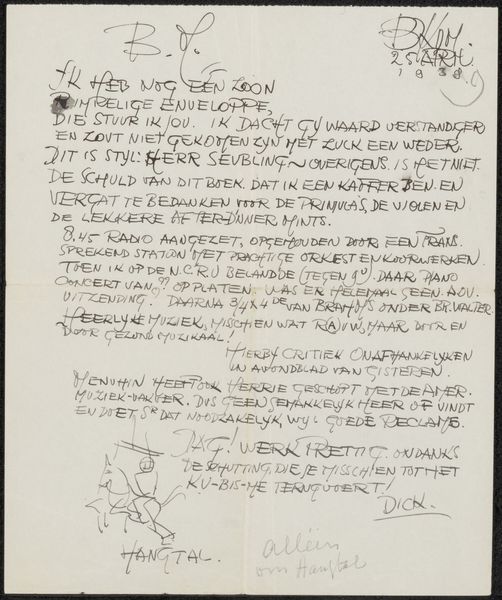 B.J.
BKDM.
25 APRIL.
1938.
IK HEB NOG ÉÉN ZOON
RIMPELIGE ENVELOPPE,
DIE STUUR IK JOU. IK DACHT GIJ WAARD VERSTANDIGER
EN ZOUT NIET GEKOMEN ZIJN MET ZULK EEN WEDER.
DIT IS STIJL: HERR SEUBLING ~ OVERIGENS IS HET NIET
DE SCHULD VAN DIT BOEK DAT IK EEN KAFFER BEN. EN
VERGAT TE BEDANKEN VOOR DE PRIMULA'S, DE VIOLEN EN
DE LEKKERE AFTER-DINNER MINTS.
8.45 RADIO AANGEZET, OPGEHOUDEN DOOR EEN FRANS
SPREKEND STATION MET PRACHTIGE ORKEST EN KOORWERKEN.
TOEN IK OP DE N.C.R.V BELANDDE (TEGEN 9U) DAAR PIANO
CONCERT VAN ?? OP PLATEN. WAS ER HELEMAAL GEEN
UITZENDING? DAARNA 3/4 X 4DE VAN BRAHMS ONDER BR. WALTER.
HEERLIJKE MUZIEK, MISSCHIEN WAT RAUW, MAAR DOOR EN
DOOR GEZOND MUZIKAAL!
HIERBIJ CRITIEK ONAFHANKELIJKEN
IN AVONDBLAD VAN GISTEREN.
MENUHIN HEEFT OOK HERRIE GESCHOPT MET DE AMER.
MUZIEK-VAKVER. DUS GEEN GEMAKKELIJK HEER OF VINDT
EN DOET SR DAT NOODZAKELIJK, WIJL GOEDE RECLAME.
DAG! WERK PRETTIG. ONDANKS
DE SCHUTTING, DIE JE MISSCHIEN TOT HET
KU-BIS-ME TERUGVOERT!
DICK.
HANGTAL.
alléén
om Hangtal